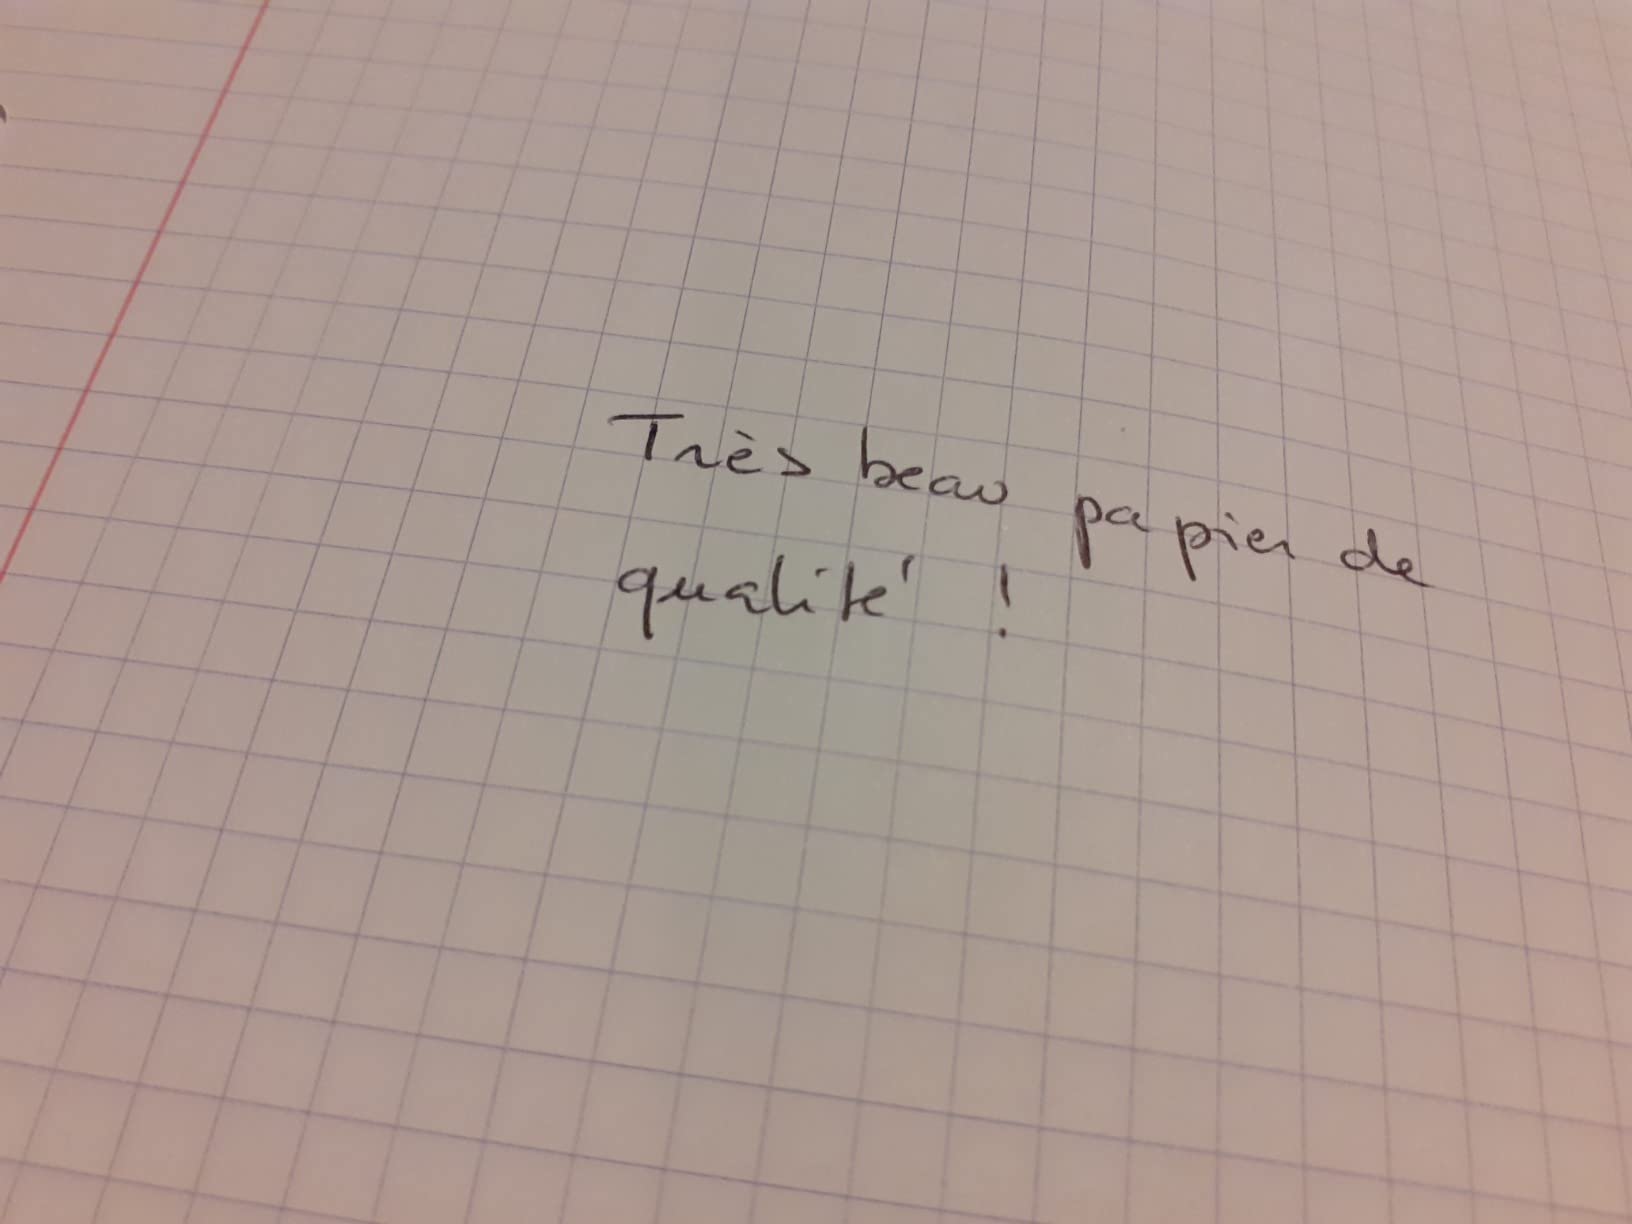 Très beau papier de
qualité !